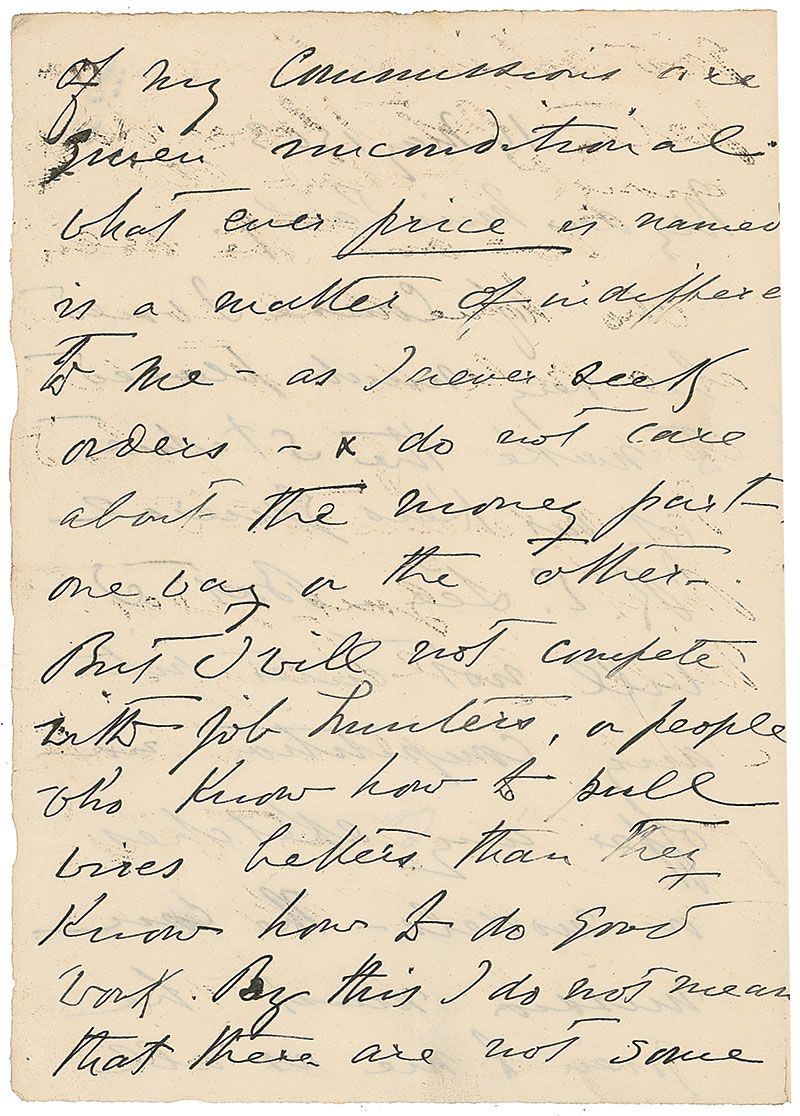 of my Commissions are
given unconditional.
what ever price is named
is a matter of indiffere
to me - as I never seek
orders - x do not care
about the money part -
one way or the other -
But I will not compete
with job hunters, or people
who know how to pull
wires betters than they
know how to do good
work. By this I do not mean
that there are not some